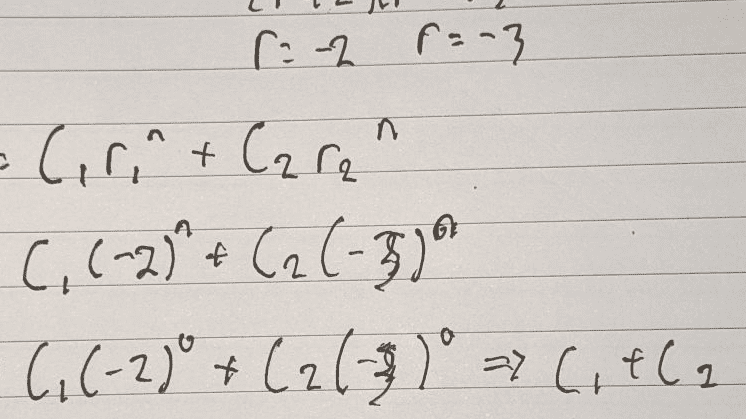 r = -2 r = -3
= C₁ r₁ⁿ + C₂ r₂ⁿ
C₁ (-2)ⁿ + C₂ (-3)ⁿ
C₁ (-2)⁰ + C₂ (-3)⁰ => C₁ + C₂